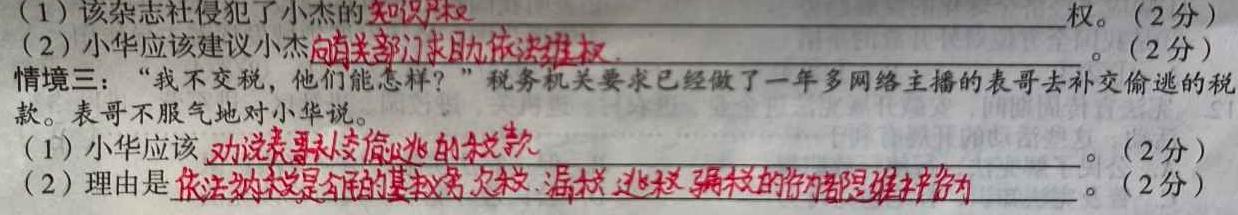 （1）该杂志社侵犯了小杰的知识产权权。（2分）
（2）小华应该建议小杰向有关部门求助,依法维权.。（2分）
情境三：“我不交税，他们能怎样？”税务机关要求已经做了一年多网络主播的表哥去补交偷逃的税
款。表哥不服气地对小华说。
（1）小华应该劝说表哥补交偷逃的税款。（2分）
（2）理由是依法纳税是公民的基本义务,欠税.漏税.逃税.骗税的行为都是违法行为。（2分）